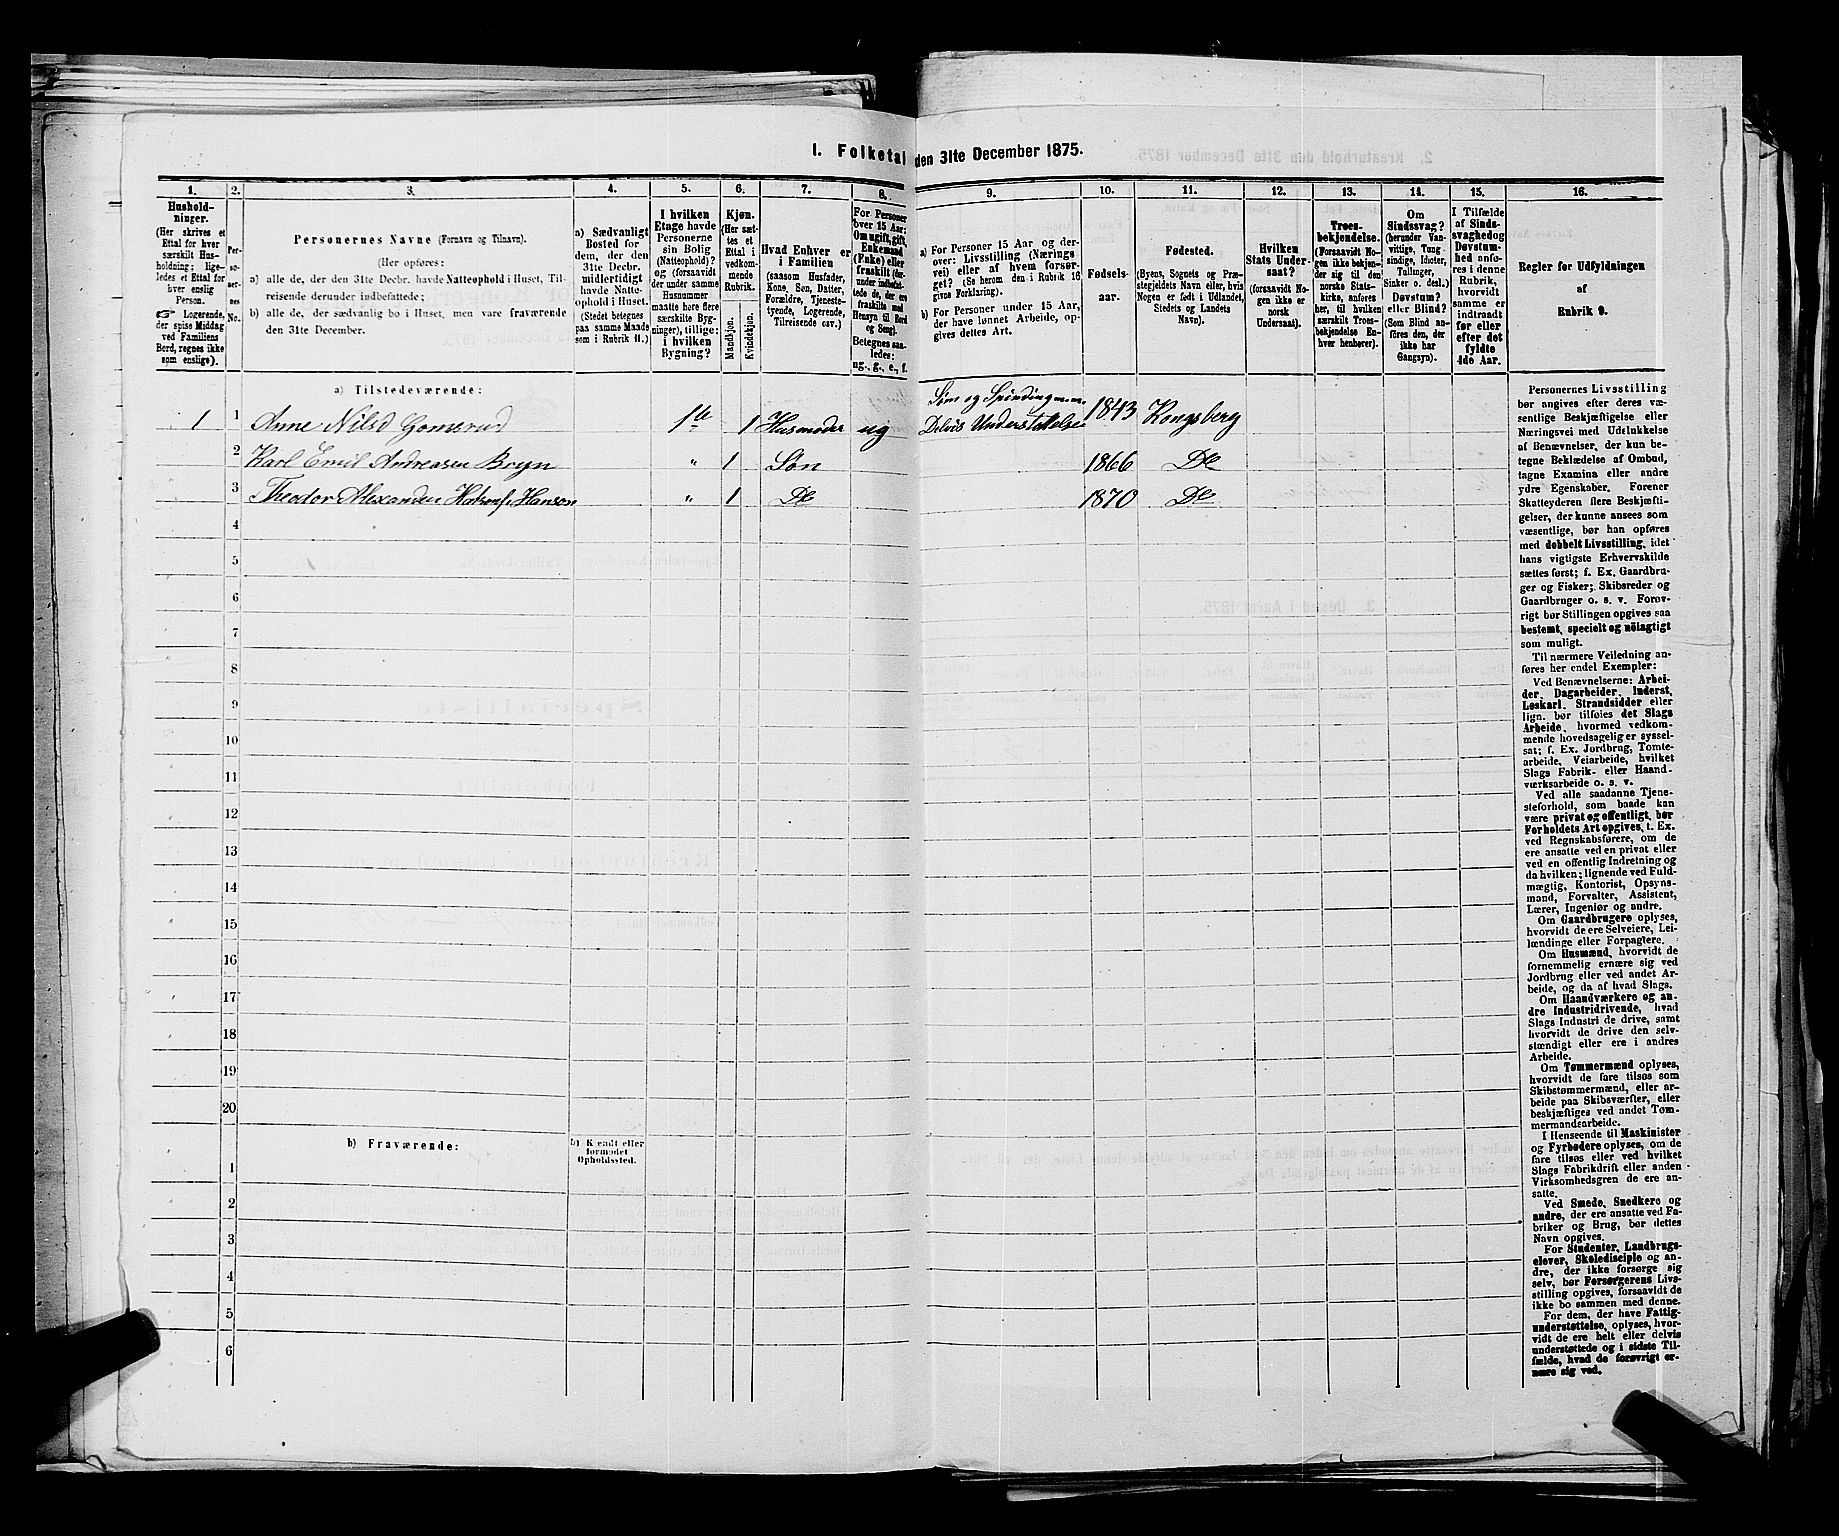 I. Folketal den 31te December 1875.
1. 2. 3. 4. 5. 6. 7. 8. 9. 10. 11. 12. 13. 14. 15. 16.
Hushold-
ninger.
(Her skrives et
Ettal for hver
særskilt Hus-
holdning; lige-
ledes et Ettal for
hver enslig
Person.
☞ Logerende,
der spise Middag
ved Familiens
Bord, regnes ikke
som enslige).
Per-
so-
ner-
nes
No.
Personernes Navne (Fornavn og Tilnavn).
(Her opføres:
a) alle de, der den 31te Decbr. havde Natteophold i Huset, Til-
reisende derunder indbefattede;
b) alle de, der sædvanlig bo i Huset, men vare fraværende
den 31te December.
a) Sædvanligt
Bosted for
dem, der den
31te Decbr.
midlertidigt
havde Natte-
ophold i Huset.
(Stedet betegnes
paa samme Maade
som i Rubrik 11.)
I hvilken
Etage havde
Personerne
sin Bolig
(Natteophold)?
og (forsaavidt
der under samme
Husnummer
maatte høre flere
særskilte Byg-
ninger), tillige:
i hvilken
Bygning?
Kjøn.
(Her sæt-
tes et
Ettal i
vedkom-
mende
Rubrik.
Mandkjøn.
Kvindekjøn.
Hvad Enhver er
i Familien
(saasom Husfader,
Kone, Søn, Datter,
Forældre, Tjeneste-
tyende, Logerende,
Tilreisende osv.)
For Personer
over 15 Aar:
Om ugift, gift,
Enkemand
(Enke) eller
fraskilt (der-
under indbefat-
tede de, der ere
fraskilte med
Hensyn til Bord
og Seng).
Betegnes saa-
ledes:
ug., g., e., f.
a) For Personer 15 Aar og der-
over: Livsstilling (Nærings
vei) eller af hvem forsør-
get? (Se herom den i Rubrik 16
givne Forklaring).
b) For Personer under 15 Aar,
der have lønnet Arbeide, op-
gives dettes Art.
Fødsels-
aar.
Fødested.
(Byens, Sognets og Præ-
stegjeldets Navn eller, hvis
Nogen er født i Udlandet,
Stedets og Landets
Navn).
Hvilken
Stats Under-
saat?
(forsaavidt No-
gen ikke er
norsk
Undersaat).
Troes-
bekjendelse.
(Forsaavidt No-
gen ikke bekjen-
der sig til den
norske Stats-
kirke, anføres
her, til hvilken
særskilt Troes-
bekjendelse En-
hver henhører).
Om
Sindssvag?
(herunder Van-
vittige, Tung-
sindige, Idioter,
Tullinger,
Sinker o. desl.)
Døvstum?
eller Blind?
(Som Blind an-
føres den, der
ikke har
Gangsyn).
I Tilfælde
af Sinds-
svaghed og
Døvstum-
hed anfø-
res i denne
Rubrik,
hvorvidt
samme er
indtraadt
før eller
efter det
fyldte
4de Aar.
Regler for Udfyldningen
af
Rubrik 9.
a) Tilstedeværende:
1 1 Anne Nilsd Gomerud 1ste 1 Husmoder ug Søm og Spinding m. m. Delvis Understøttelse 1843 Kongsberg
2 Karl Emil Andreasen Bryn " 1 Søn 1866 Do
3 Theodor Alexander Hansen " 1 Do 1870 Do
4
5
6
7
8
9
10
11
12
13
14
15
16
17
18
19
20
b) Fraværende:
b) Kjendt eller
formodet
Opholdssted.
1
2
3
4
5
6
Personernes Livsstilling
bør angives efter deres væ-
sentlige Beskjæftigelse eller
Næringsvei med Udelukkelse
af Benævnelser, der kun be-
tegne Beklædelse af Ombud,
tagne Examina eller andre
ydre Egenskaber. Forener
Skatteyderen flere Beskjæfti-
gelser, der kunne ansees som
væsentlige, bør han opføres
med dobbelt Livsstilling, idet
hans vigtigste Erhvervskilde
sættes først; f. Ex. Gaardbru-
ger og Fisker; Skibsreder og
Gaardbruger o. s. v. Forøv-
rigt bør Stillingen opgives saa
bestemt, specielt og nöiagtigt
som muligt.
Til nærmere Veiledning an-
føres her endel Exempler:
Ved Benævnelserne: Arbei-
der, Dagarbeider, Inderst,
Løskarl, Strandsidder eller
lign. bør tilføies det Slags
Arbeide, hvormed vedkom-
mende hovedsagelig er syssel-
sat; f. Ex. Jordbrug, Tomte-
arbeide, Veiarbeide, hvilket
Slags Fabrik- eller Haand-
værksarbeide o. s. v.
Ved alle saadanne Tjene-
steforhold, som baade kan
være privat og offentligt, bør
Forholdets Art opgives, f. Ex.
ved Regnskabsførere, om de
ere ansatte ved en privat eller
ved en offentlig Indretning og
da hvilken; lignende ved Fuld-
mægtig, Kontorist, Opsyns-
mand, Forvalter, Assistent,
Lærer, Ingeniør og andre.
Om Gaardbrugere oplyses,
hvorvidt de ere Selveiere, Lei-
lændinge eller Forpagtere.
Om Husmænd, hvorvidt de
fornemmelig ernære sig ved
Jordbrug eller ved andet Ar-
beide, og da af hvad Slags.
Om Haandværkere og an-
dre Industridrivende, hvad
Slags Industri de drive, samt
hvorvidt de drive den selv-
stændigt eller ere i andres
Arbeide.
Om Tømmermænd oplyses,
hvorvidt de fare tilsøs som
Skibstømmermænd, eller ar-
beide paa Skibsværfter, eller
beskjæftiges ved andet Tøm-
mermandsarbeide.
I Henseende til Maskinister
og Fyrbødere oplyses, om de
fare tilsøs eller ved hvilket
Slags Fabrikdrift eller anden
Virksomhedsgren de ere an-
satte.
Ved Smede, Snedkere og
andre, der ere ansatte ved Fa-
briker og Brug, bør dettes
Navn opgives.
For Studenter, Landbrugs-
elever, Skoledisciple og an-
dre, der ikke forsørge sig
selv, bør Forsørgerens Livs-
stilling opgives, forsaavidt de
ikke bo sammen med denne.
For dem, der have Fattig-
understøttelse, oplyses, hvor-
vidt de ere helt eller delvis
understøttede og i sidste Til-
fælde, hvad de forøvrigt er-
nære sig ved.